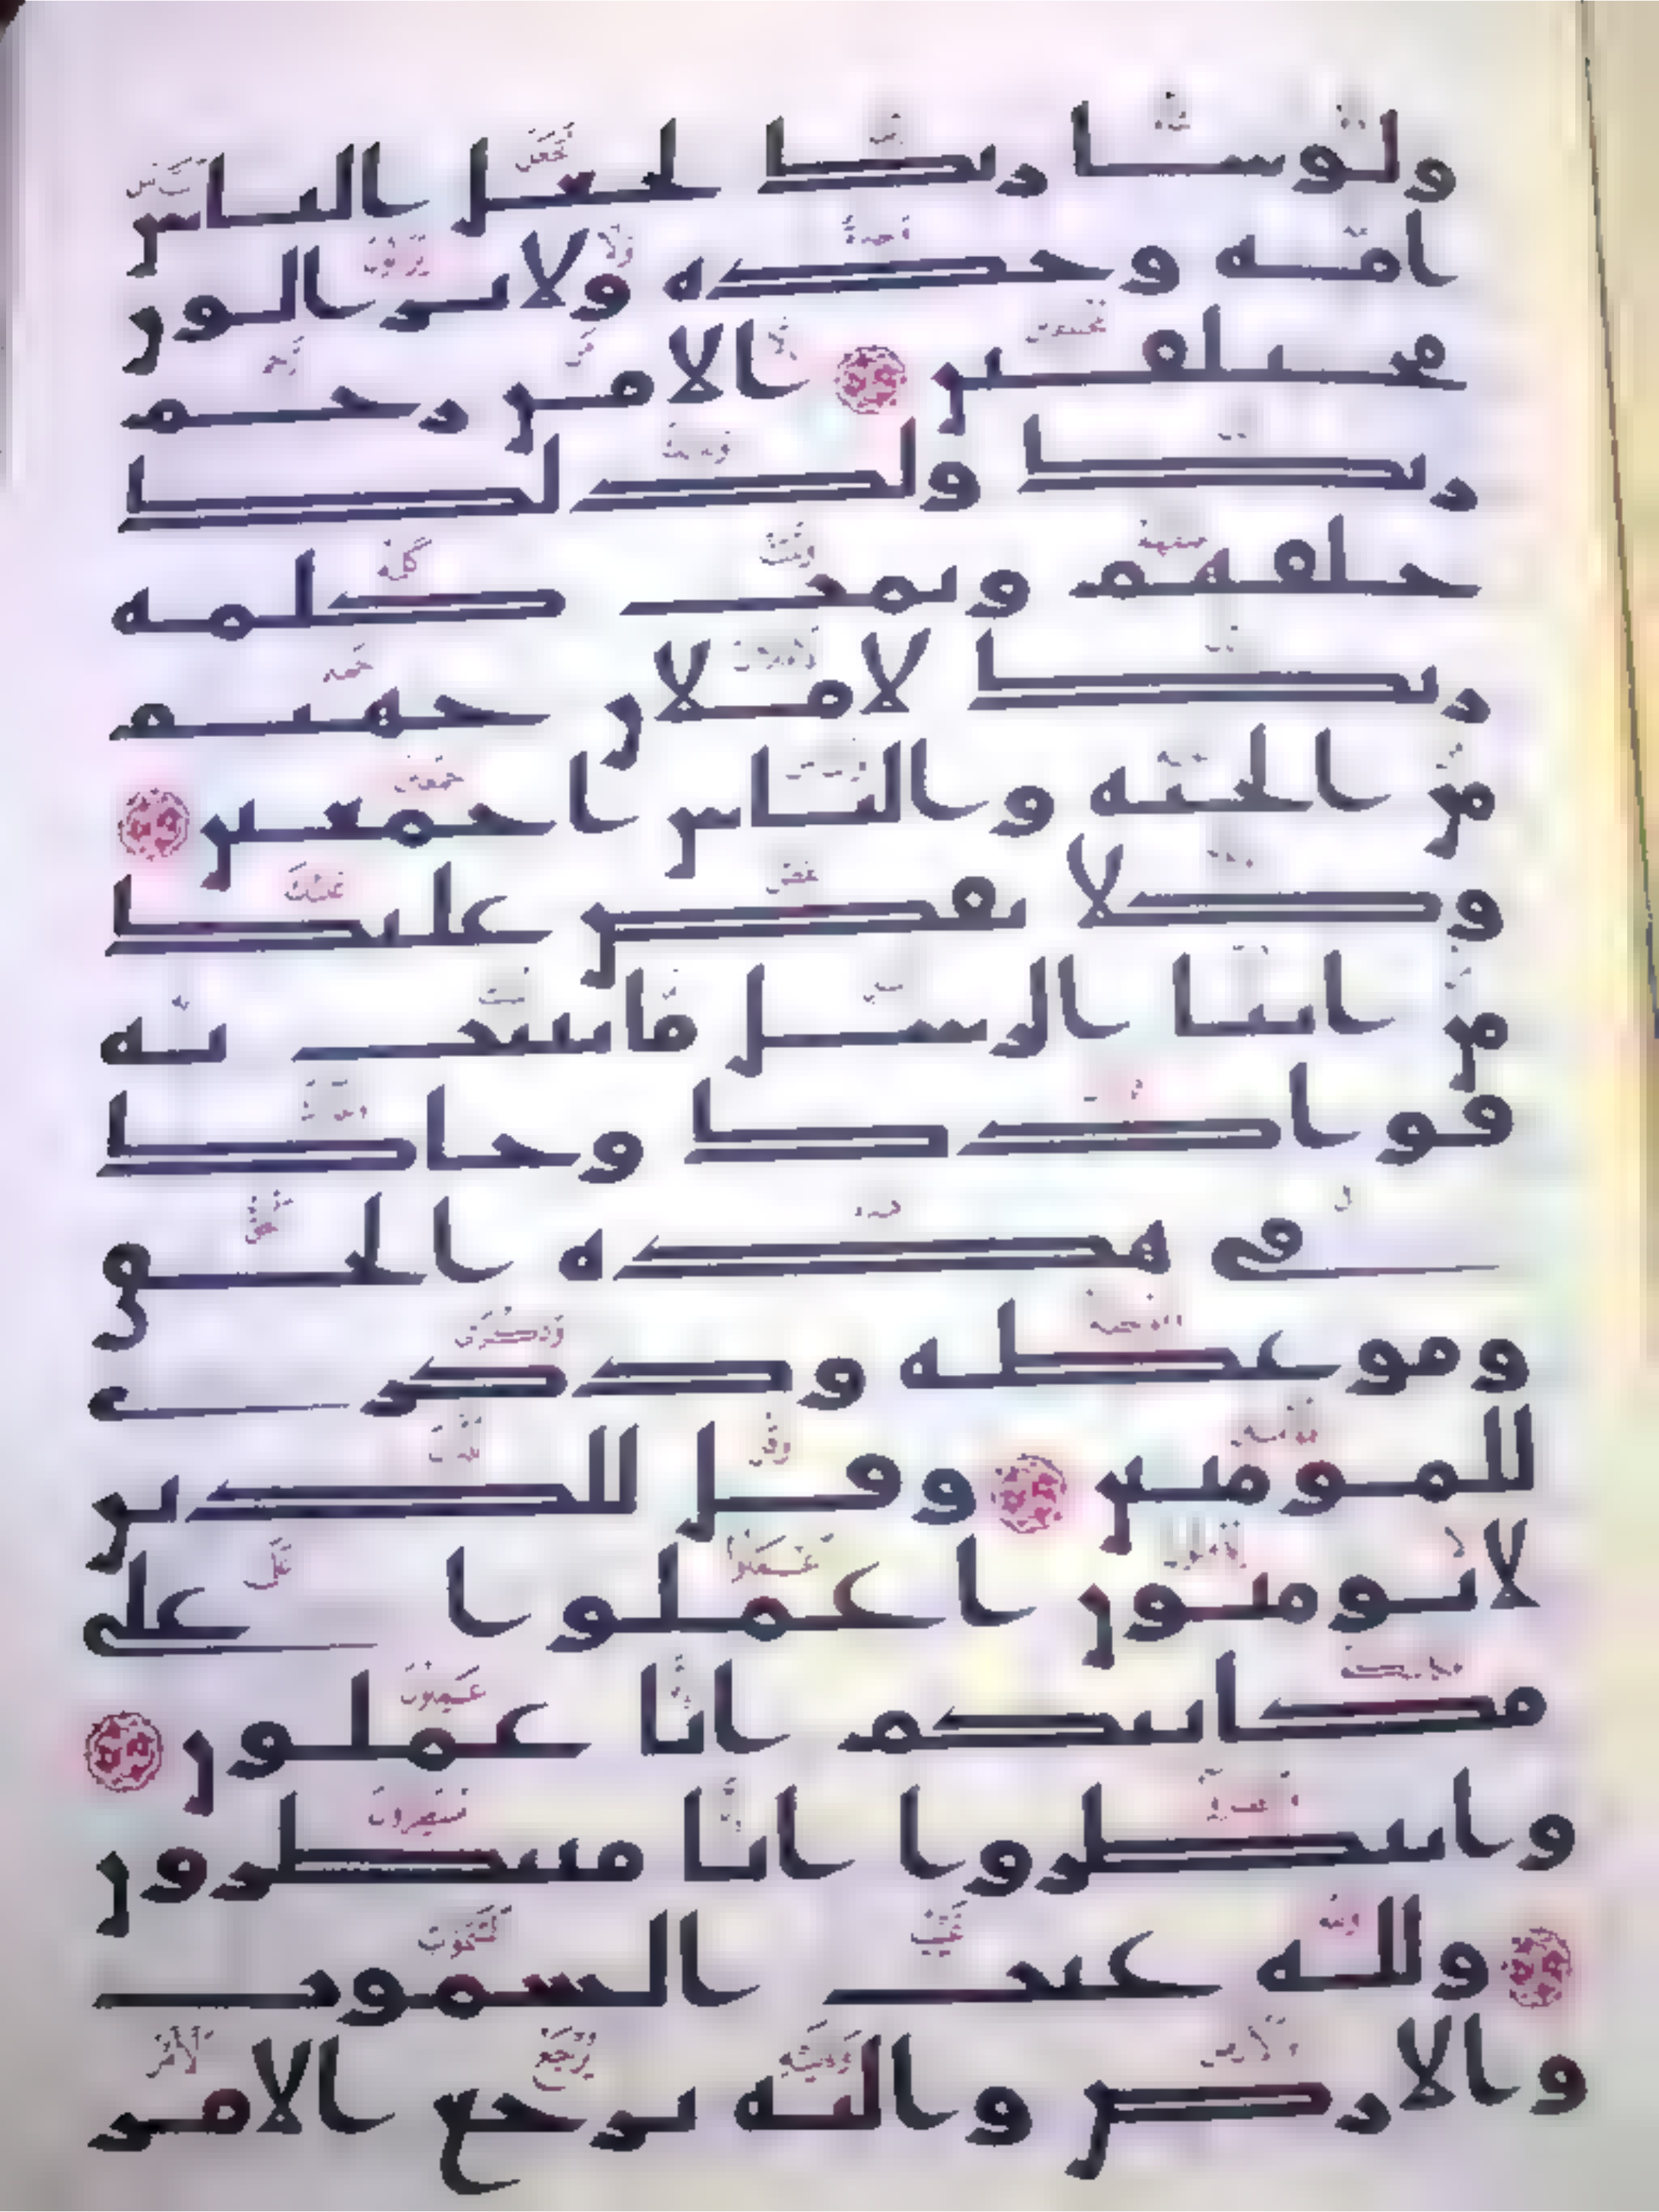 ولو شا ربك لجعل الناس
امة وحده ولا يزالون
مختلفين الا من رحم
ربك ولذلك
خلقهم وتمت كلمة
ربك لاملان جهنم
من الجنة والناس اجمعين
وكلا نقص عليك
من انبا الرسل ما نثبت به
فوادك وجاك
في هذه الحق
وموعظة وذكرى
للمومنين وقل للذين
لا يومنون اعملوا على
مكانتكم انا عملون
وانتظروا انا منتظرون
ولله غيب السموت
والارض واليه يرجع الامر